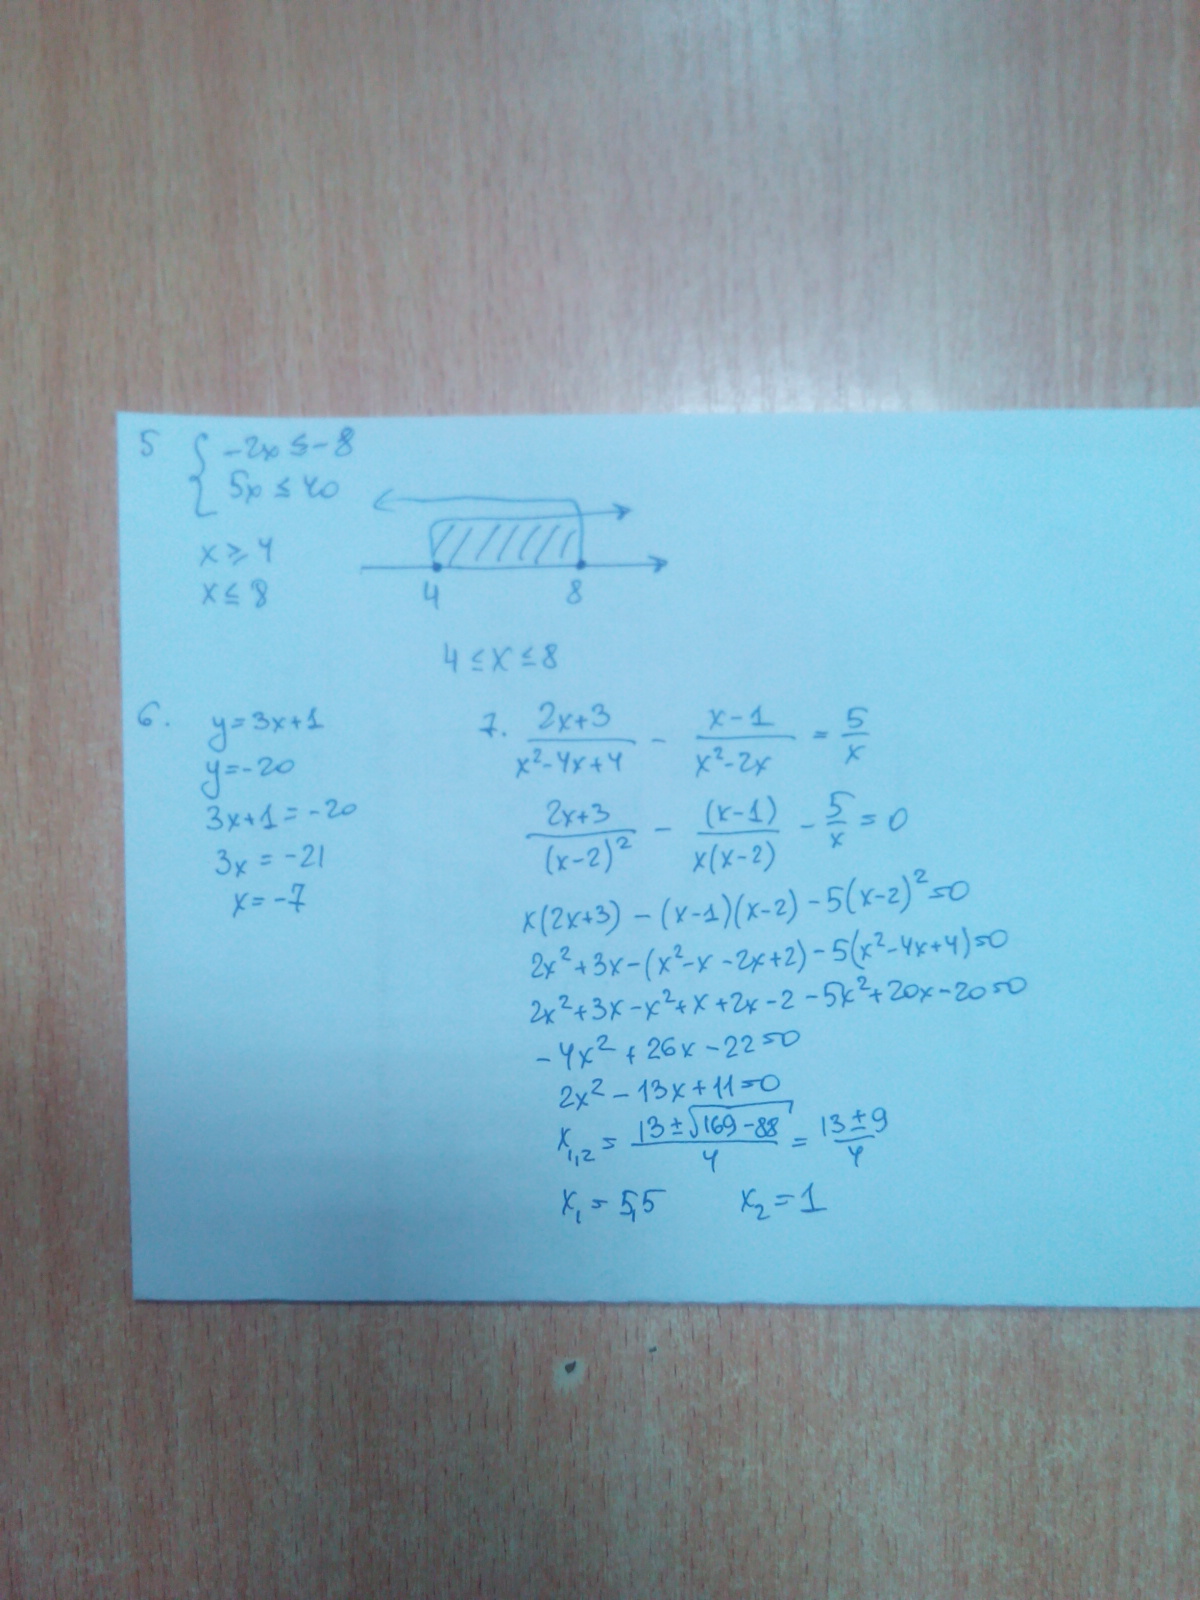 5 { -2x ≤ -8
5x ≤ 40
x ≥ 4
x ≤ 8
4 8
4 ≤ x ≤ 8
6. y=3x+1
y=-20
3x+1=-20
3x=-21
x=-7
7. (2x+3)/(x²-4x+4) - (x-1)/(x²-2x) = 5/x
(2x+3)/(x-2)² - (x-1)/(x(x-2)) - 5/x = 0
x(2x+3) - (x-1)(x-2) - 5(x-2)²=0
2x²+3x-(x²-x-2x+2)-5(x²-4x+4)=0
2x²+3x-x²+x+2x-2-5x²+20x-20=0
-4x²+26x-22=0
2x²-13x+11=0
x₁,₂ = (13±√(169-88))/4 = (13±9)/4
x₁ = 5,5 x₂ = 1